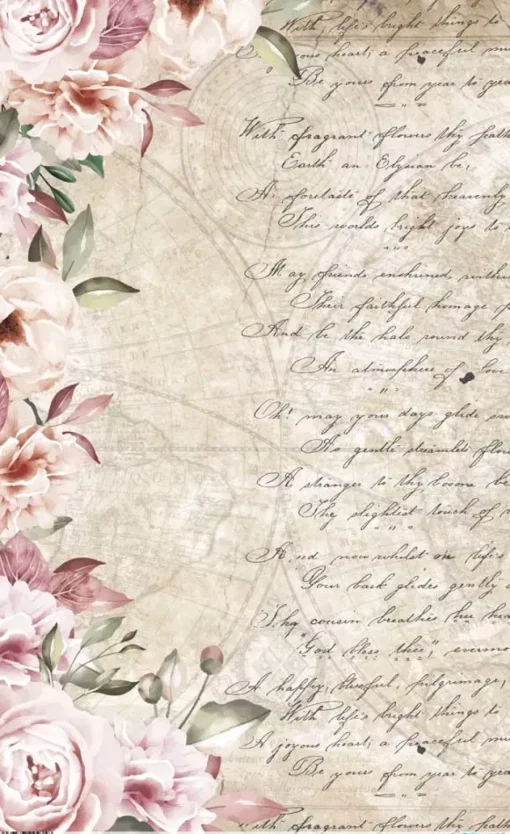 With life's bright things to
heart; a peaceful
Be yours from year to year
With fragrant flowers thy path
Earth an Elysian be,
A foretaste of that heavenly
This world's bright joys to
May friends enshrined within
Their faithful homage
And be the halo round thy
An atmosphere of love
Oh! may your days glide
As gentle streamlets flow
A stranger to thy bosom be
The slightest touch of
And now whilst on life's
Your bark glides gently
Thy cousin breathes her
"God bless thee",
A happy, blissful, pilgrimage,
With life's bright things to
A joyous heart; a peaceful
Be yours from year to year
With fragrant flowers thy path